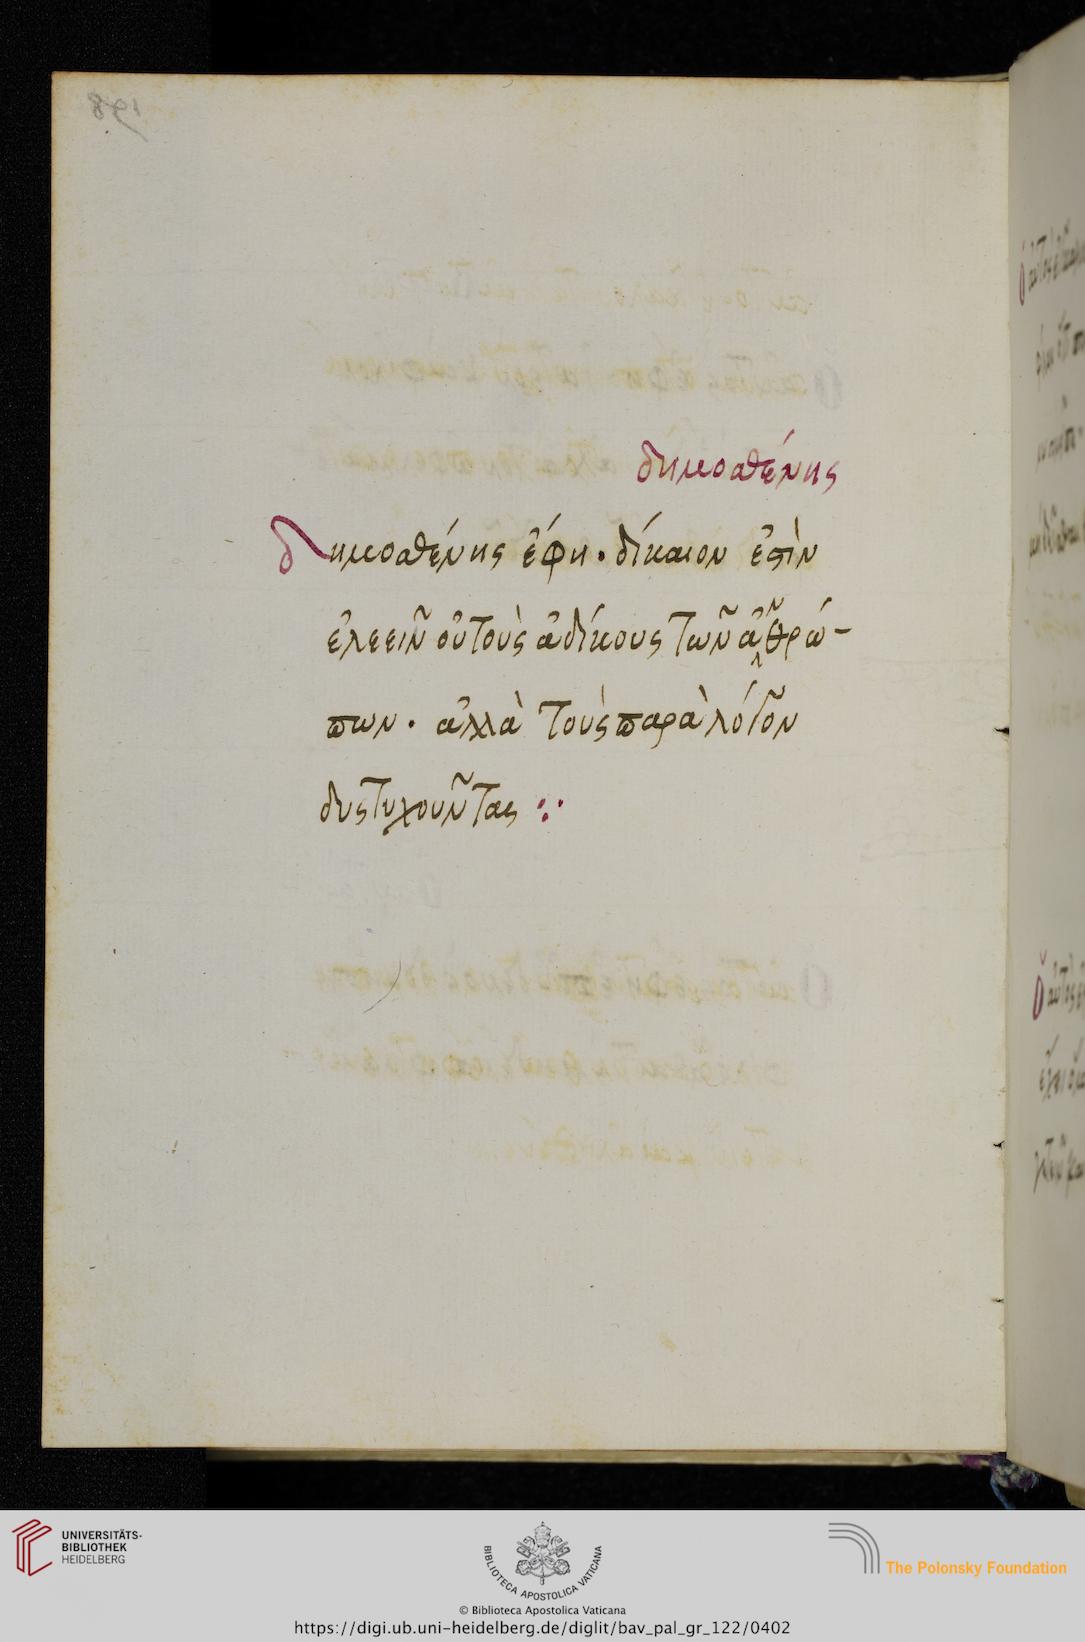 δημοσθένης
δημοσθένης ἔφη· δίκαιον ἐστὶν
ἐλεεῖν οὐ τοὺς ἀδίκους τῶν ἀνθρώ-
πων· ἀλλὰ τοὺς παρὰ λόγον
δυστυχοῦντας
UNIVERSITÄTS-
BIBLIOTHEK
HEIDELBERG
BIBLIOTECA APOSTOLICA VATICANA
The Polonsky Foundation
© Biblioteca Apostolica Vaticana
https://digi.ub.uni-heidelberg.de/diglit/bav_pal_gr_122/0402